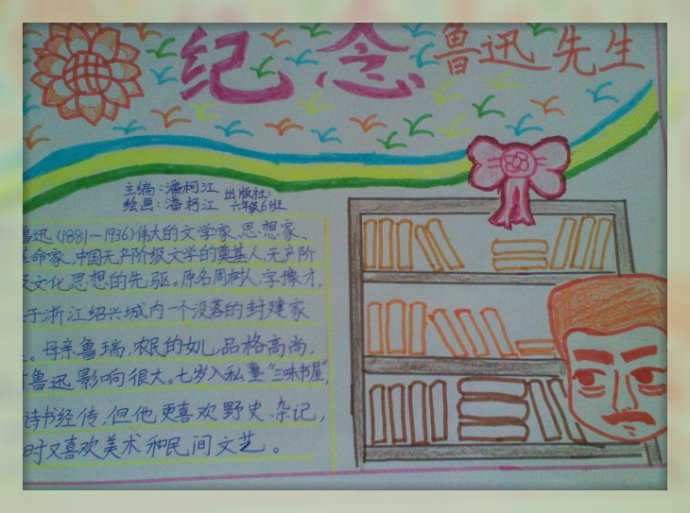 纪念鲁迅先生
主编：潘柯江 出版社：
绘画：潘柯江 六年级6班
鲁迅(1881—1936)伟大的文学家、思想家、
革命家，中国无产阶级文学的奠基人，无产阶
级文化思想的先驱。原名周树人，字豫才，
于浙江绍兴城内一个没落的封建家
。母亲鲁瑞，农民的女儿，品格高尚，
鲁迅影响很大。七岁入私塾“三味书屋”，
诗书经传，但他更喜欢野史、杂记，
时又喜欢美术和民间文艺。